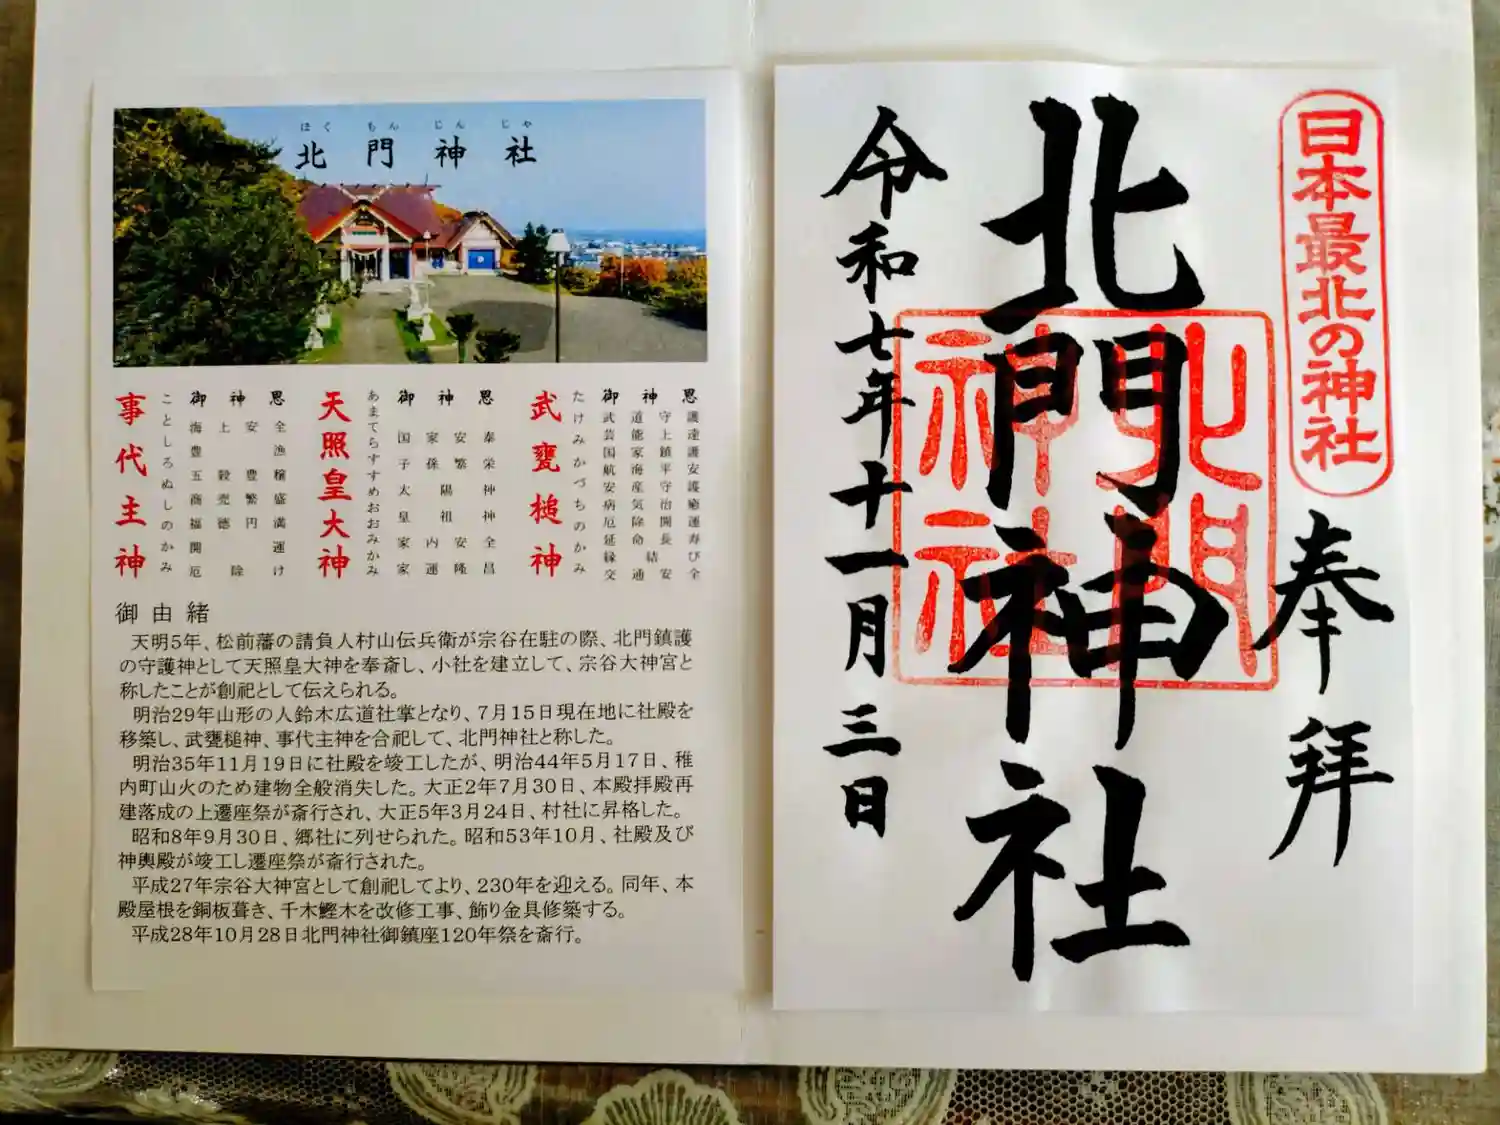 ほくもんじんじゃ
北門神社
武甕槌神
たけみかづちのかみ
御神恩
武道守護
芸能上達
国家鎮護
航海平安
安産守護
病気治癒
厄除開運
延命長寿
縁結び
交通安全
天照皇大神
あまてらすすめおおみかみ
御神恩
国家安泰
子孫繁栄
太陽神
皇祖神
家内安全
家運隆昌
事代主神
ことしろぬしのかみ
御神恩
海上安全
豊漁
五穀豊穣
商売繁盛
福徳円満
開運
厄除け
御由緒
天明5年、松前藩の請負人村山伝兵衛が宗谷在駐の際、北門鎮護
の守護神として天照皇大神を奉斎し、小社を建立して、宗谷大神宮と
称したことが創祀として伝えられる。
明治29年山形の人鈴木広道社掌となり、7月15日現在地に社殿を
移築し、武甕槌神、事代主神を合祀して、北門神社と称した。
明治35年11月19日に社殿を竣工したが、明治44年5月17日、稚
内町山火のため建物全般消失した。大正2年7月30日、本殿拝殿再
建落成の上遷座祭が斎行され、大正5年3月24日、村社に昇格した。
昭和8年9月30日、郷社に列せられた。昭和53年10月、社殿及び
神輿殿が竣工し遷座祭が斎行された。
平成27年宗谷大神宮として創祀してより、230年を迎える。同年、本
殿屋根を銅板葺き、千木鰹木を改修工事、飾り金具修築する。
平成28年10月28日北門神社御鎮座120年祭を斎行。
日本最北の神社
奉拝
北門神社
北門神社
令和七年十一月三日